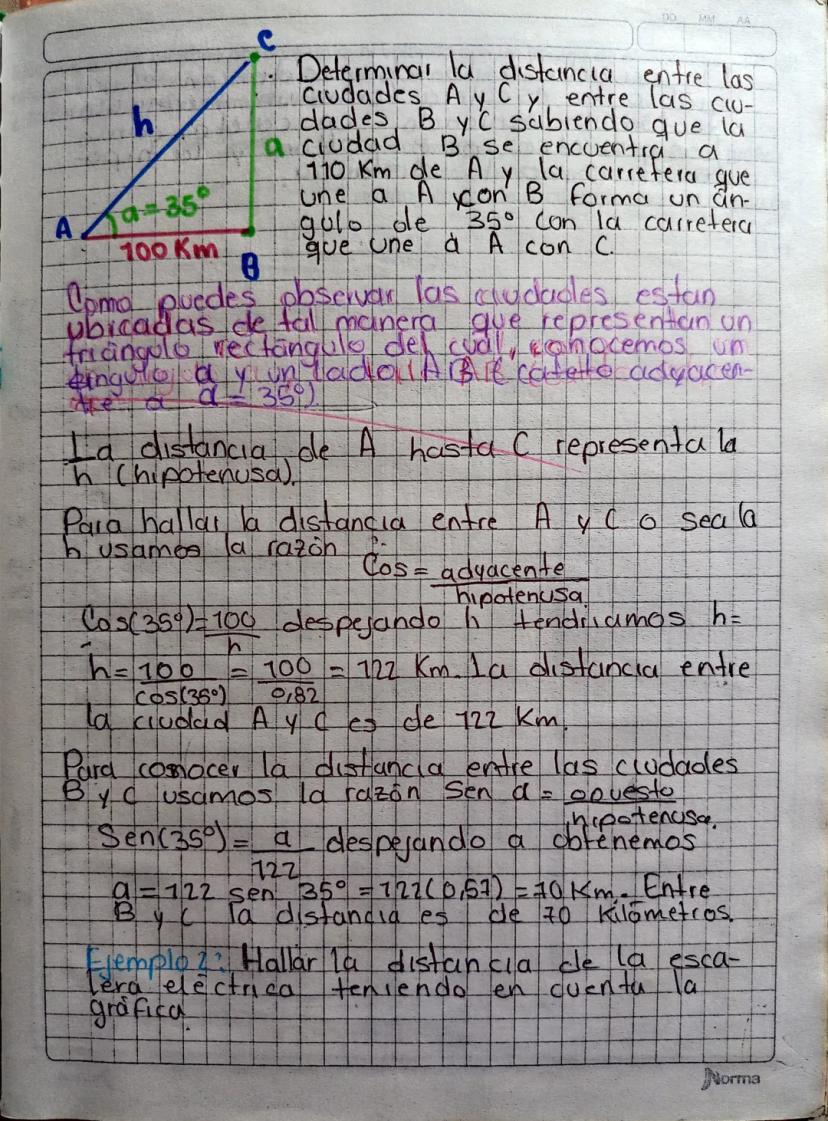 DD MM AA
C
h
a
A
a = 35°
100 Km
B
Determinar la distancia entre las
ciudades A y C y entre las ciu-
dades B y C sabiendo que la
ciudad B se encuentra a
110 Km de A y la carretera que
une a A con B forma un án-
gulo de 35° con la carretera
que une a A con C.
Como puedes observar las ciudades estan
ubicadas de tal manera que representan un
triángulo rectángulo del cual, conocemos un
ángulo a y un lado (A B (cateto adyacen-
te a a = 35°)
La distancia de A hasta C representa la
h (hipotenusa).
Para hallar la distancia entre A y C o sea la
h usamos la razón :
Cos = adyacente
hipotenusa
Cos(35°) = 100 despejando h tendriamos h=
h
h = 100 = 100 = 122 Km. La distancia entre
cos(35°) 0,82
la ciudad A y C es de 122 Km.
Para conocer la distancia entre las ciudades
B y C usamos la razón Sen a = opuesto
hipotenusa.
Sen(35°) = a despejando a obtenemos
122
a = 122 sen 35° = 122(0,57) = 70 Km. Entre
B y C la distancia es de 70 kilómetros.
Ejemplo 2: Hallar la distancia de la esca-
lera eléctrica teniendo en cuenta la
gráfica
Norma